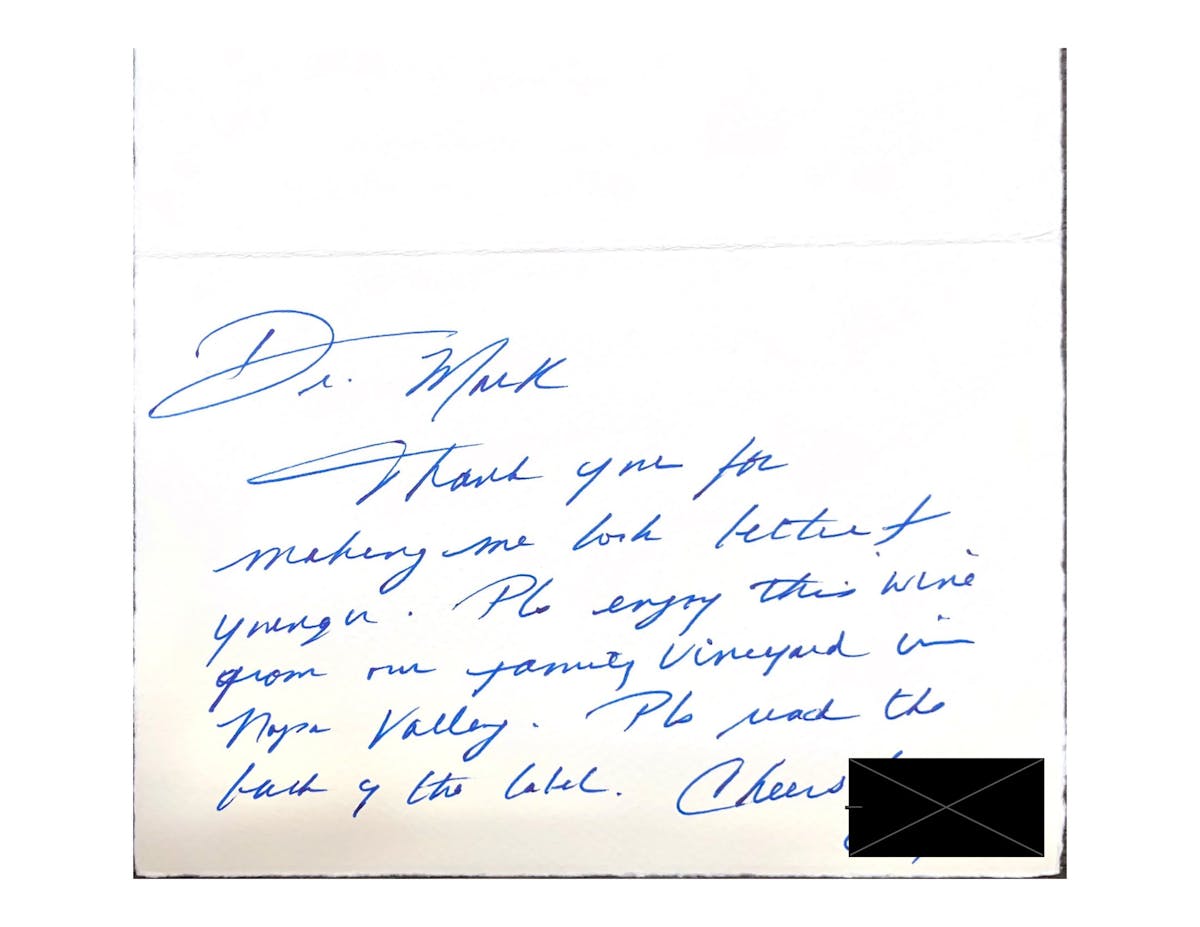 Dr. Mark
Thank you for
making me look better &
younger. Pls enjoy this wine
from our family vineyard in
Napa Valley. Pls read the
back of the label. Cheers